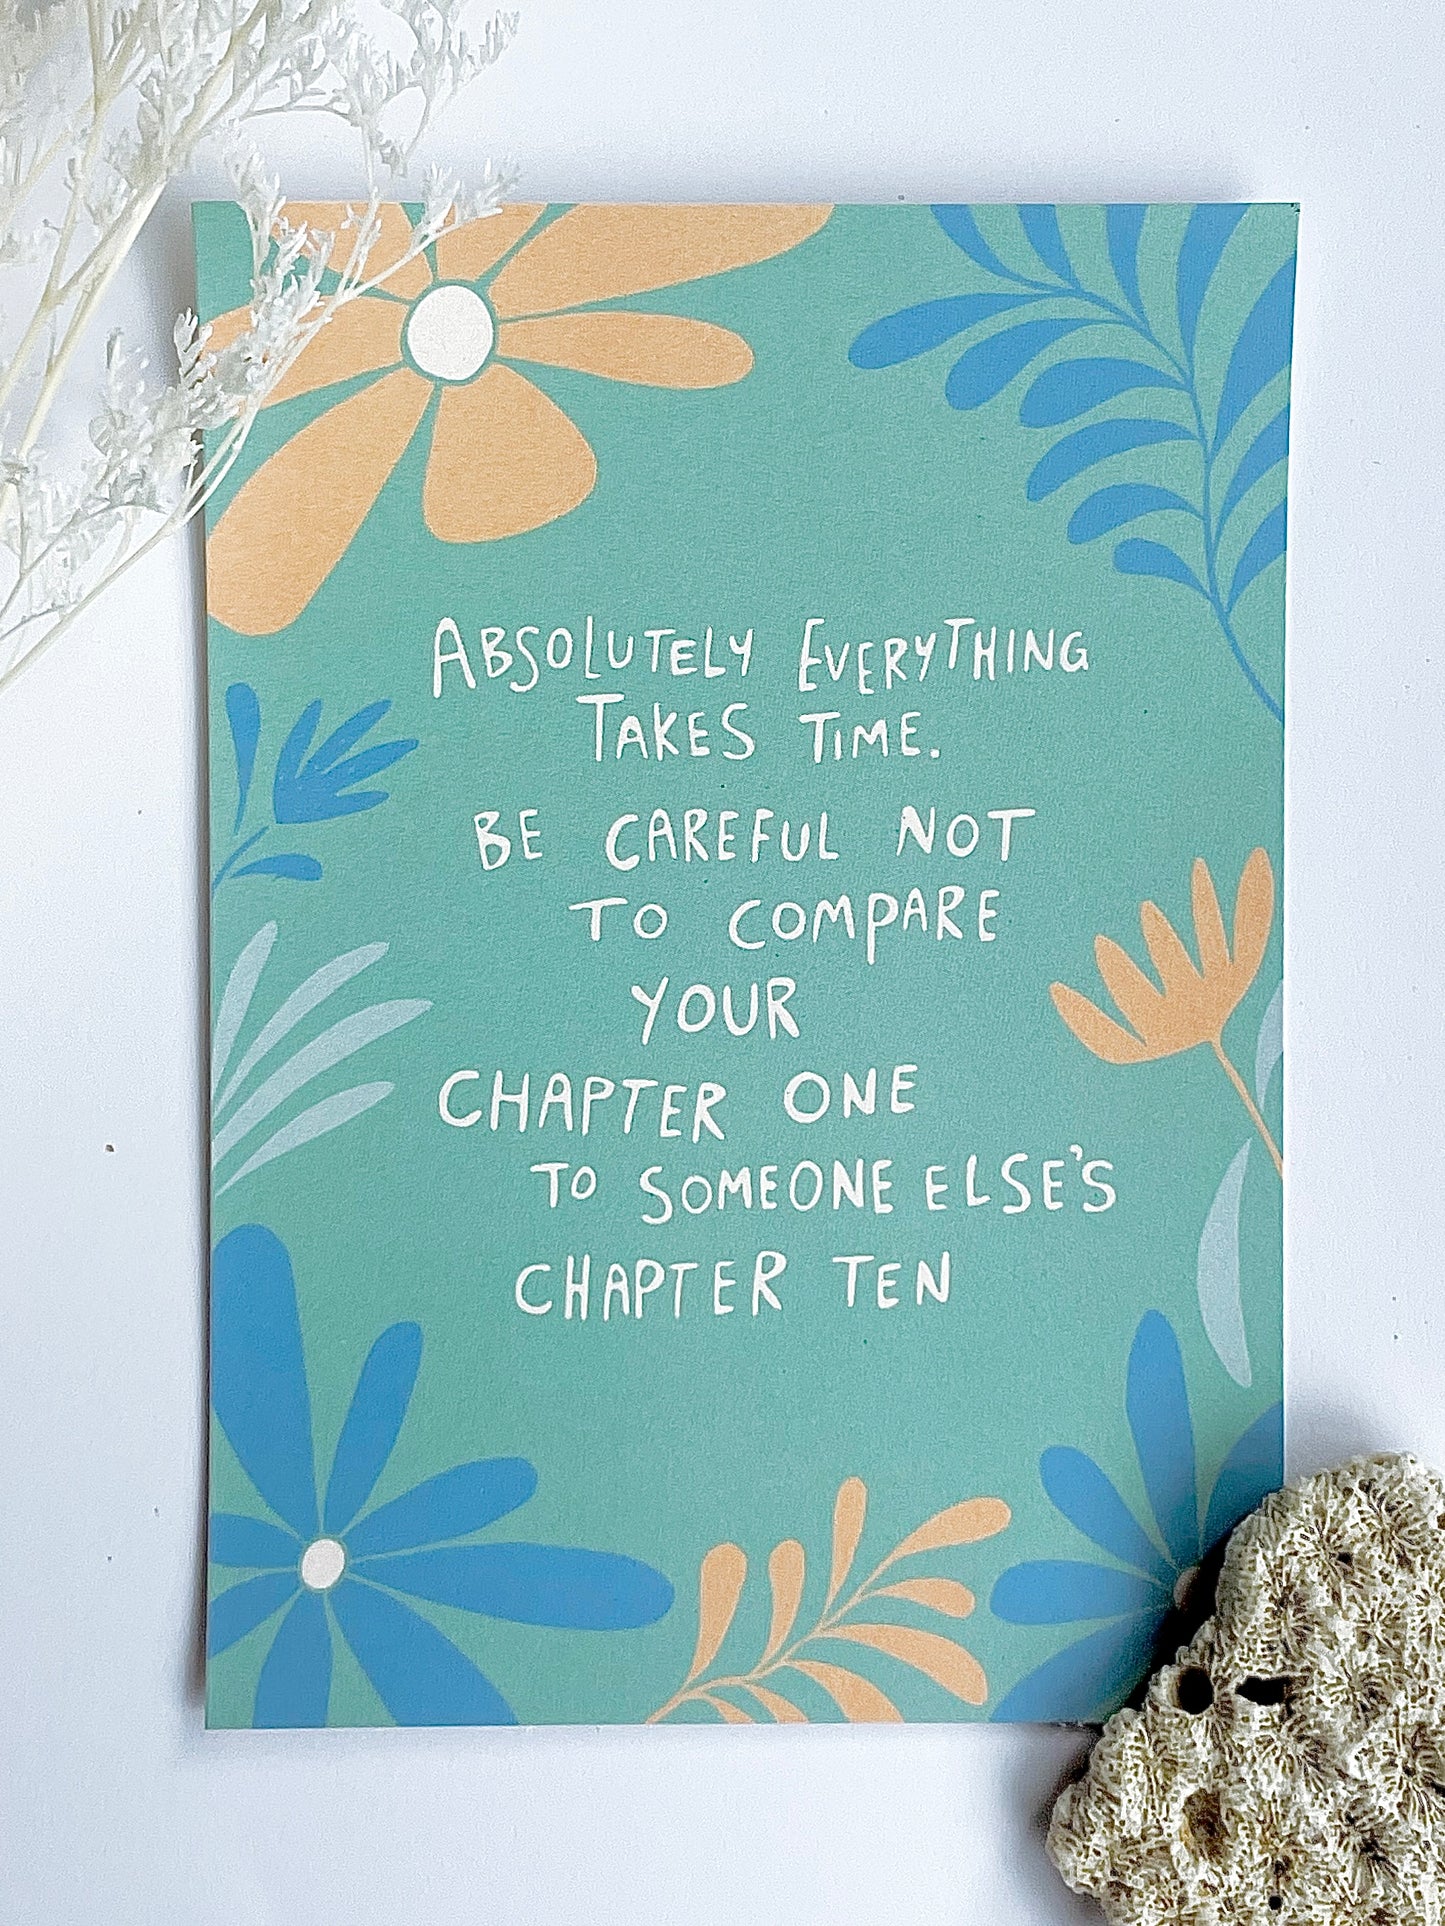 ABSOLUTELY EVERYTHING
TAKES TIME.
BE CAREFUL NOT
TO COMPARE
YOUR
CHAPTER ONE
TO SOMEONE ELSE'S
CHAPTER TEN